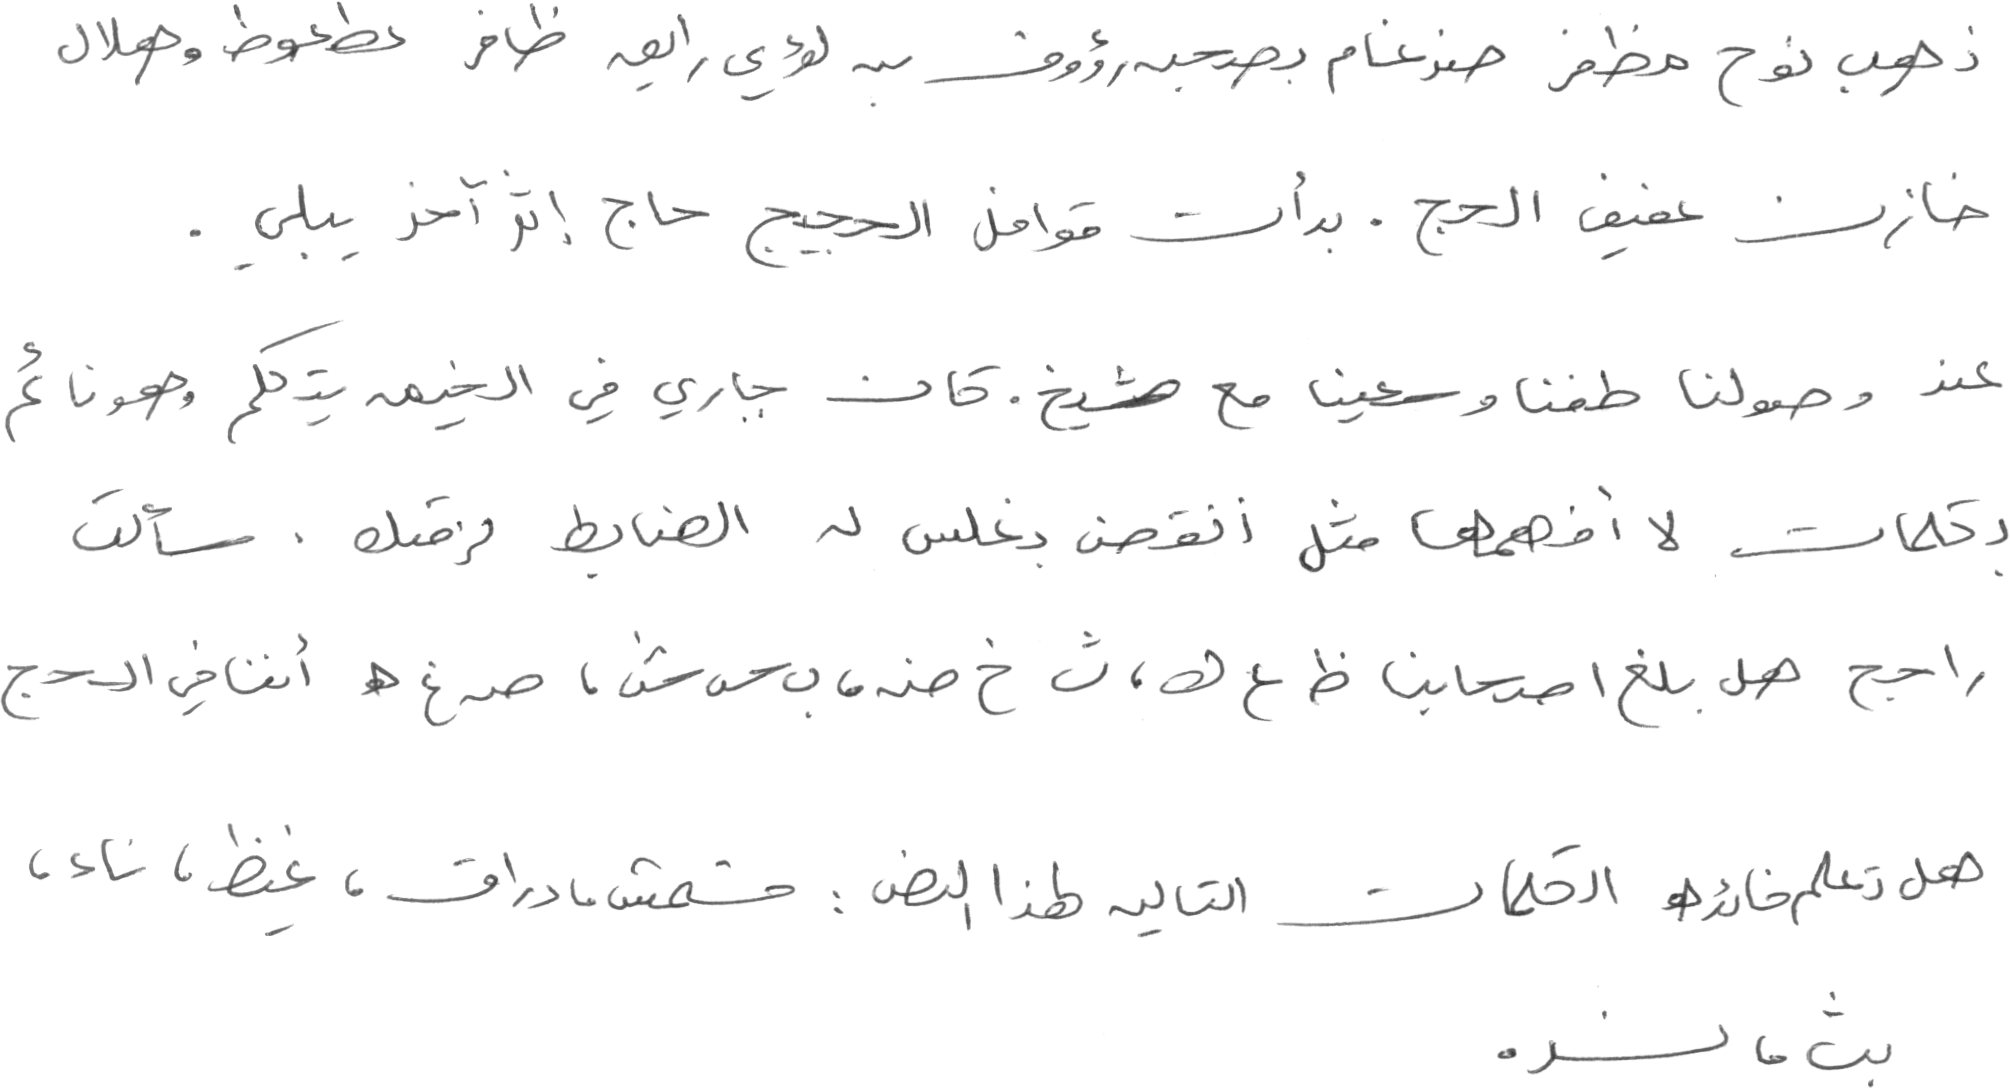 ذهب نوح مظفر ضرغام بصحبه رؤوف بن لؤي رايه ظافر عطعوط وهلال
خازن عفيف الحج . بدأت قوافل الحجيج حاج إثر آخر يلبي .
عند وصولنا طفنا وسعينا مع شيخ . كان جاري في الخيمه يتكلم وهو نائم
بكلمات لا أفهمها مثل أنقض بغلس له الضابط فرقك . سألت
راجح هل بلغ اصحابنا ظ ع ك ، ث خ ض ، ب ح ش ، ص غ ه أننا في الحج
هل تعلم فائده الكلمات التاليه لهذا النص : مشمش ، دراق ، غيظ ، ناء ،
بث ،